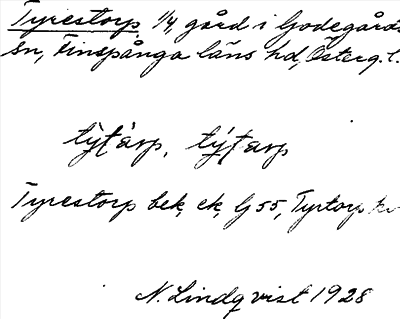 Tyrestorp 1/4, gård i Godegårds
sn, Finspånga läns hd, Österg. l.
tỳṭàrp, týṭarp
Tyrestorp bek, ek, G 55, Tyrtorp
N. Lindqvist 1928